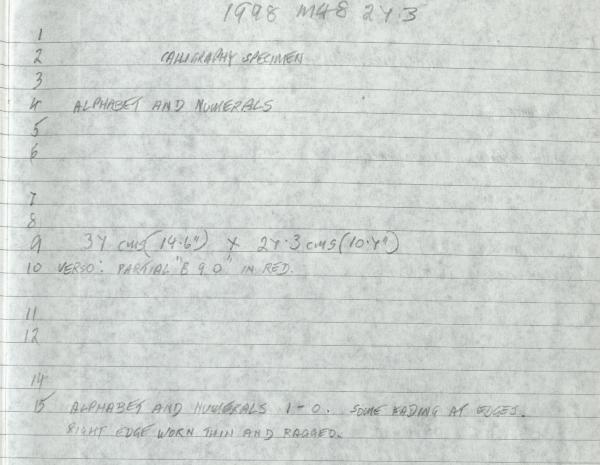 1998 M48 27.3
1
2 CALLIGRAPHY SPECIMEN
3
4 ALPHABET AND NUMERALS
5
6
7
8
9 37 cms(14.6") X 27.3 cms(10.7")
10 VERSO: PARTIAL "8 9 0" IN RED.
11
12
14
15 ALPHABET AND NUMERALS 1-0. SOME FADING AT EDGES.
RIGHT EDGE WORN THIN AND RAGGED.